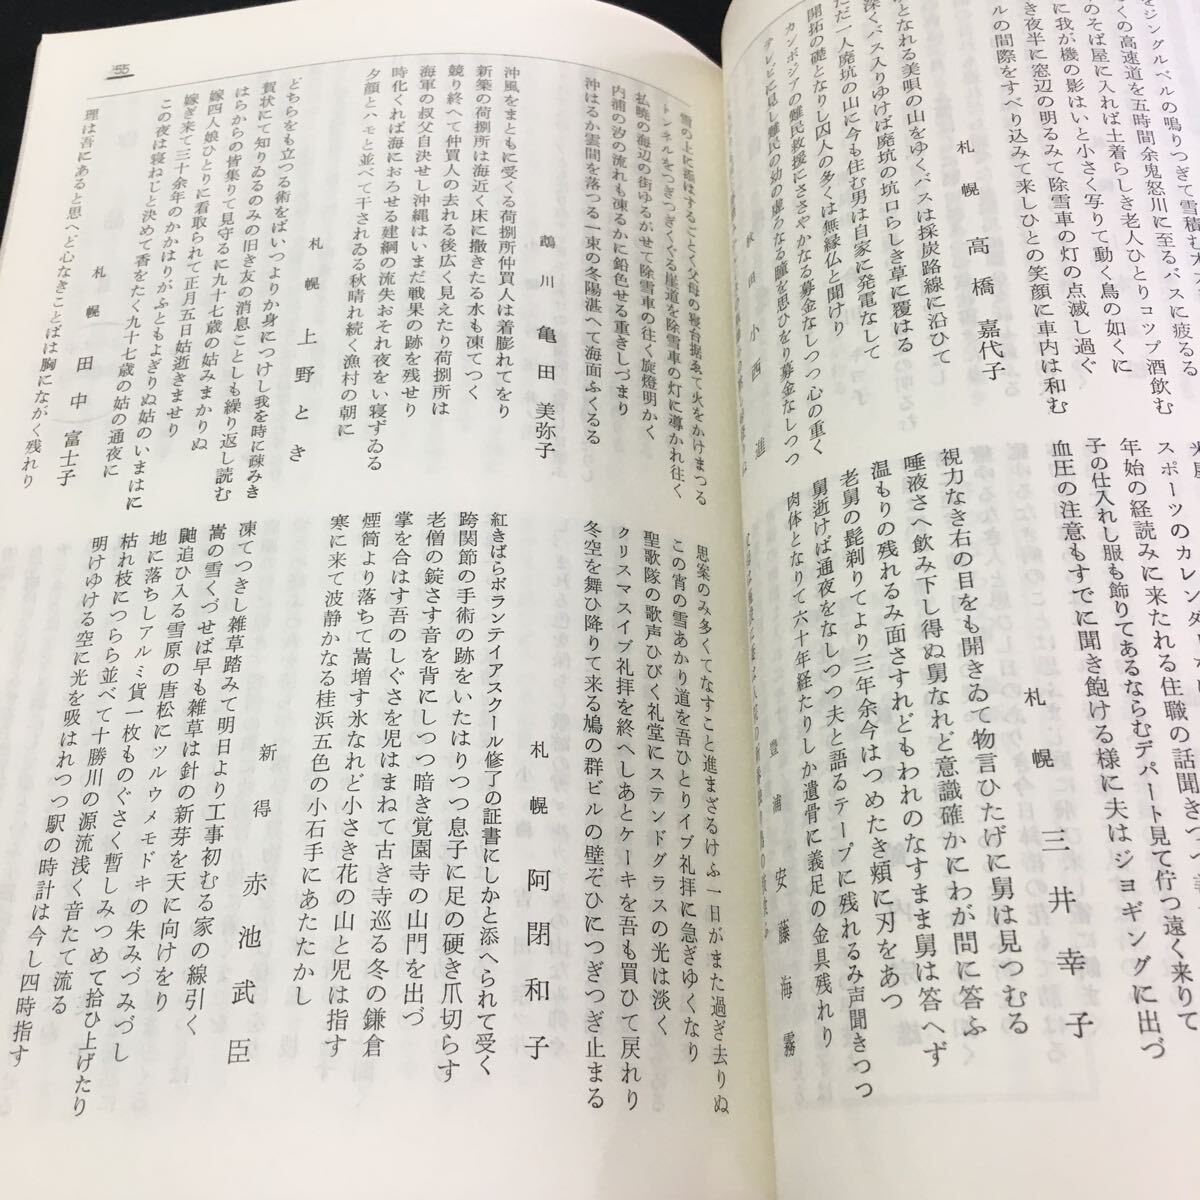 をジングルベルの鳴りつぎて雪積む
くの高速道を五時間余鬼怒川に至るバスに疲る
のそば屋に入れば土着らしき老人ひとりコップ酒飲む
に我が機の影はいと小さく写りて動く鳥の如くに
き夜半に窓辺の明るみて除雪車の灯の点滅し過ぐ
ルの間際をすべり込みて来しひとの笑顔に車内は和む
札幌 高橋嘉代子
となれる美唄の山をゆくバスは採炭路線に沿ひて
深くバス入りゆけば廃坑の坑口らしき草に覆はる
ただ一人廃坑の山に今も住む男は自家に発電なして
開拓の礎となりし囚人の多くは無縁仏と聞けり
カンボジアの難民救援にささやかなる募金なしつつ心の重く
テレビに見し難民の幼の虚ろなる瞳を思ひをり募金なしつつ
秋田 小西進
スポーツのカレンダー
年始の経読みに来たれる住職の話聞きつつ
子の仕入れし服も飾りてあるならむデパート見て佇つ遠く来りて
血圧の注意もすでに聞き飽ける様に夫はジョギングに出づ
札幌 三井幸子
視力なき右の目をも開きゐて物言ひたげに舅は見つむる
唾液さへ飲み下し得ぬ舅なれど意識確かにわが問に答ふ
温もりの残れるみ面さすれどもわれのなすまま舅は答へず
老舅の髭剃りてより三年余今はつめたき頬に刃をあつ
舅逝けば通夜をなしつつ夫と語るテープに残れるみ声聞きつつ
肉体となりて六十年経たりしか遺骨に義足の金具残れり
豊浦 安藤海霧
55
雪の上に添はすることく父母の寝台据ゑて火をかけまつる
トンネルをつぎつぎくぐる崖道を除雪車の灯に導かれ往く
払暁の海辺の街ゆるがせて除雪車の往く旋燈明かく
内浦の汐の流れも凍るかに鉛色せる重きしづまり
沖はるか雲間を落つる一束の冬陽湛へて海面ふくるる
鵡川 亀田美弥子
沖風をまともに受くる荷捌所仲買人は着膨れてをり
新築の荷捌所は海近く床に撒きたる水も凍てつく
競り終へて仲買人の去れる後広く見えたり荷捌所は
海軍の叔父自決せし沖縄はいまだ戦果の跡を残せり
時化くれば海におろせる建網の流失おそれ夜をい寝ずゐる
夕顔とハモと並べて干されゐる秋晴れ続く漁村の朝に
札幌 上野とき
どちらをも立つる術をばいつよりか身につけし我を時に疎みき
賀状にて知りゐるのみの旧き友の消息ことしも繰り返し読む
はらからの皆集りて見守るに九十七歳の姑みまかりぬ
嫁四人娘ひとりに看取られて正月五日姑逝きませり
嫁ぎ来て三十余年のかかはりがふともよぎりぬ姑のいまはに
この夜は寝ねじと決めて香をたく九十七歳の姑の通夜に
札幌 田中富士子
理は吾にあると思へど心なきことばは胸にながく残れり
思案のみ多くてなすこと進まざるけふ一日がまた過ぎ去りぬ
この宵の雪あかり道を吾ひとりイブ礼拝に急ぎゆくなり
聖歌隊の歌声ひびく礼堂にステンドグラスの光は淡く
クリスマスイブ礼拝を終へしあとケーキを吾も買ひて戻れり
冬空を舞ひ降りて来る鳩の群ビルの壁ぞひにつぎつぎ止まる
札幌 阿閉和子
紅きばらボランテイアスクール修了の証書にしかと添へられて受く
跨関節の手術の跡をいたはりつつ息子に足の硬き爪切らす
老僧の錠さす音を背にしつつ暗き覚園寺の山門を出づ
掌を合はす吾のしぐさを児はまねて古き寺巡る冬の鎌倉
煙筒より落ちて嵩増す氷なれど小さき花の山と児は指す
寒に来て波静かなる桂浜五色の小石手にあたたかし
新得 赤池武臣
凍てつきし雑草踏みて明日より工事初むる家の線引く
嵩の雪くづせば早も雑草は針の新芽を天に向けをり
鼬追ひ入る雪原の唐松にツルウメモドキの朱みづみづし
地に落ちしアルミ貨一枚ものぐさく暫しみつめて拾ひ上げたり
枯れ枝につらら並べて十勝川の源流浅く音たて流る
明けゆける空に光を吸はれつつ駅の時計は今し四時指す